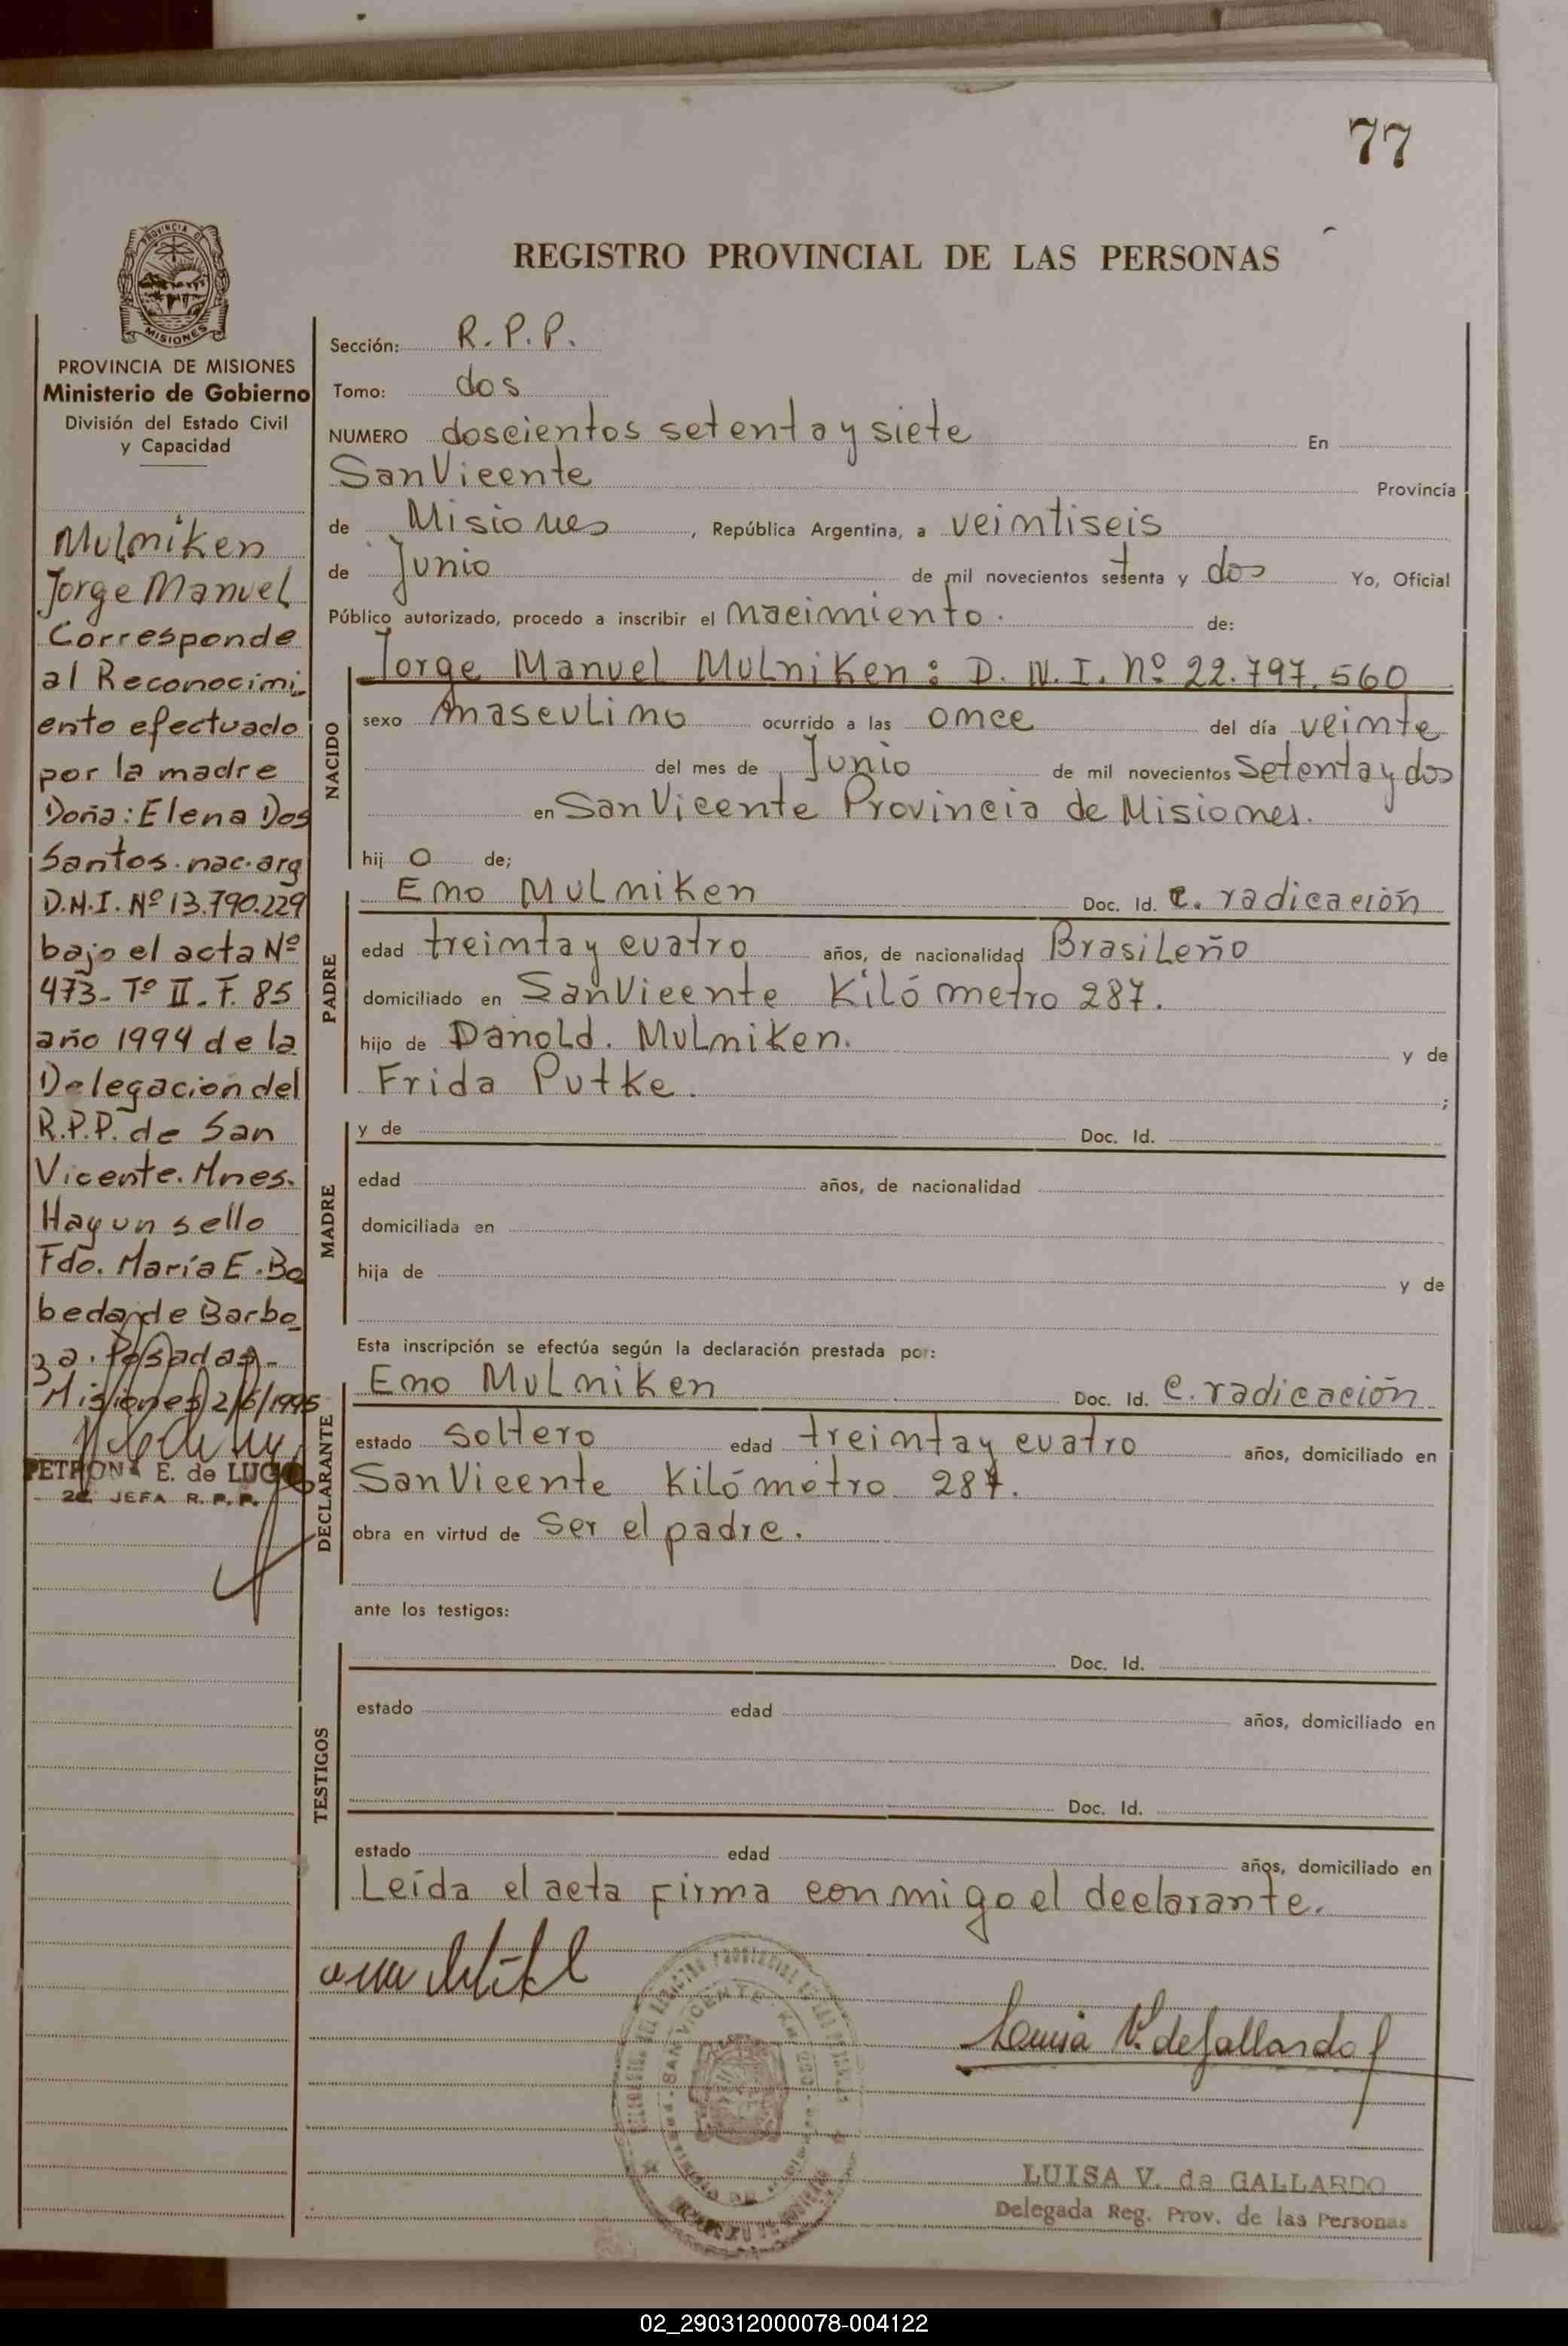 77
REGISTRO PROVINCIAL DE LAS PERSONAS
PROVINCIA DE MISIONES
Ministerio de Gobierno
División del Estado Civil
y Capacidad
Mulmiken
Jorge Manuel
Corresponde
al Reconocimi
ento efectuado
por la madre
Doña: Elena Dos
Santos. nac. arg
D.N.I. Nº 13.790.229
bajo el acta Nº
473- Tº II. F. 85
año 1994 de la
Delegacion del
R.P.P. de San
Vicente. Mnes.
Hay un sello
Fdo. María E. Bo
beda de Barbo
za. Posadas-
Misiones 2/6/1995
PETRONA E. de LUGO
2ª JEFA R.P.P.
Sección: R. P. P.
Tomo: dos
NUMERO doscientos setenta y siete En
San Vicente Provincia
de Misiones, República Argentina, a veintiseis
de Junio de mil novecientos setenta y dos Yo, Oficial
Público autorizado, procedo a inscribir el nacimiento. de:
NACIDO
Jorge Manuel Mulniken: D. N. I. nº 22.797.560
sexo masculino ocurrido a las once del día veinte
del mes de Junio de mil novecientos setenta y dos
en San Vicente Provincia de Misiones.
hij o de;
PADRE
Eno Mulniken Doc. Id. C. radicación
edad treinta y cuatro años, de nacionalidad Brasileño
domiciliado en San Vicente Kilómetro 287.
hijo de Danold. Mulniken. y de
Frida Putke. ;
MADRE
y de Doc. Id.
edad años, de nacionalidad
domiciliada en
hija de y de
Esta inscripción se efectúa según la declaración prestada por:
DECLARANTE
Eno Mulniken Doc. Id. C. radicación.
estado soltero edad treinta y cuatro años, domiciliado en
San Vicente Kilómetro 287.
obra en virtud de Ser el padre.
ante los testigos:
TESTIGOS
Doc. Id.
estado edad años, domiciliado en
Doc. Id.
estado edad años, domiciliado en
Leída el acta firma conmigo el declarante.
Luisa V. de Gallardo
LUISA V. de GALLARDO
Delegada Reg. Prov. de las Personas
02_290312000078-004122